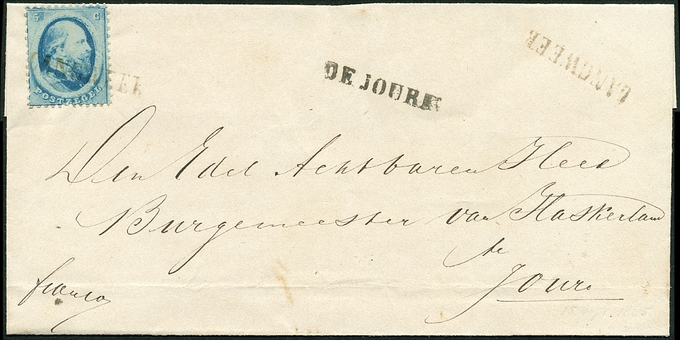 5 C
POSTZEGEL
LANGWEER
DE JOURE
LANGWEER
Den Edel Achtbaren Heer
Burgemeester van Haskerland
te
Joure
franco